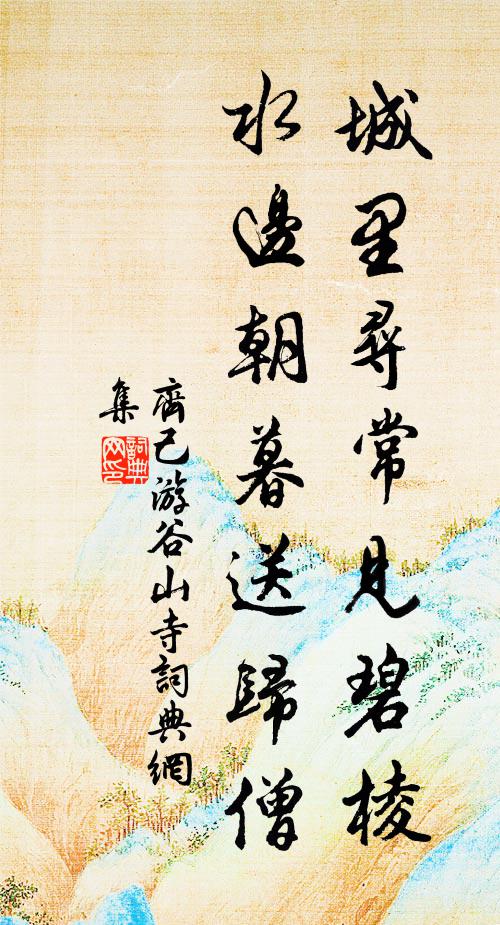 城里尋常見碧棱
水邊朝暮送歸僧
齊己游谷山寺詞典網
集
詞典網